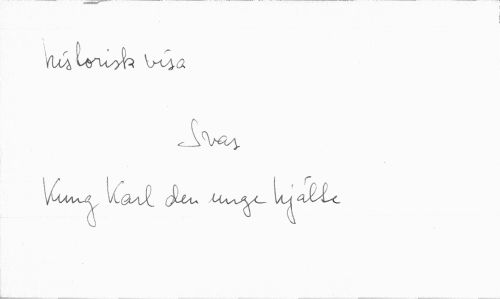 historisk visa
Svas
Kung Karl den unge hjälte